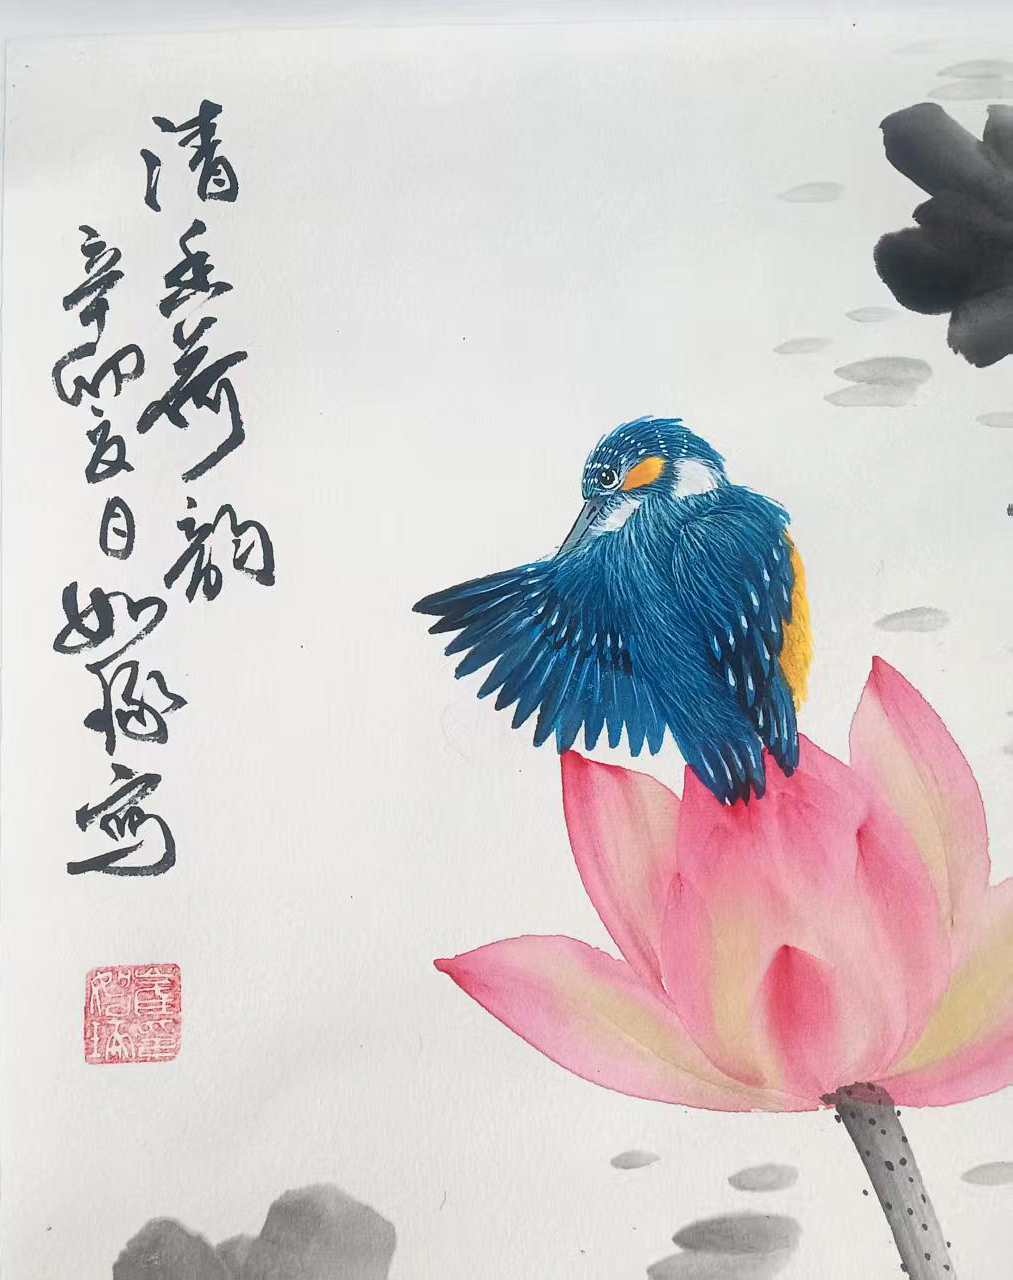 清香荷韵
辛卯夏日如写